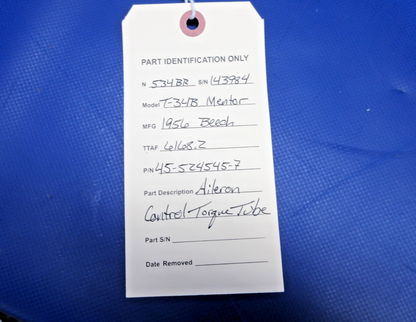 PART IDENTIFICATION ONLY
N 534BB S/N 143984
Model T-34B Mentor
MFG 1956 Beech
TTAF 6168.2
P/N 45-524545-7
Part Description Aileron
Control Torque Tube
Part S/N
Date Removed